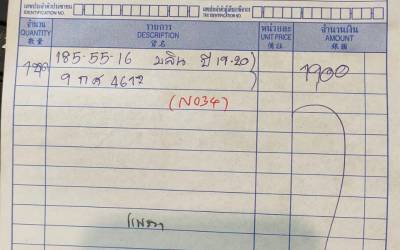 เลขประจำตัวประชาชน
IDENTIFICATION NO.
เลขประจำตัวผู้เสียภาษีอากร
TAX IDENTIFICATION NO.
จำนวน รายการ หน่วยละ จำนวนเงิน
QUANTITY DESCRIPTION UNIT PRICE AMOUNT
數量 貨名 價註 銀圓
185-55-16 มลิน ปี 19-20 1900
9 กศ 4612
(N034)